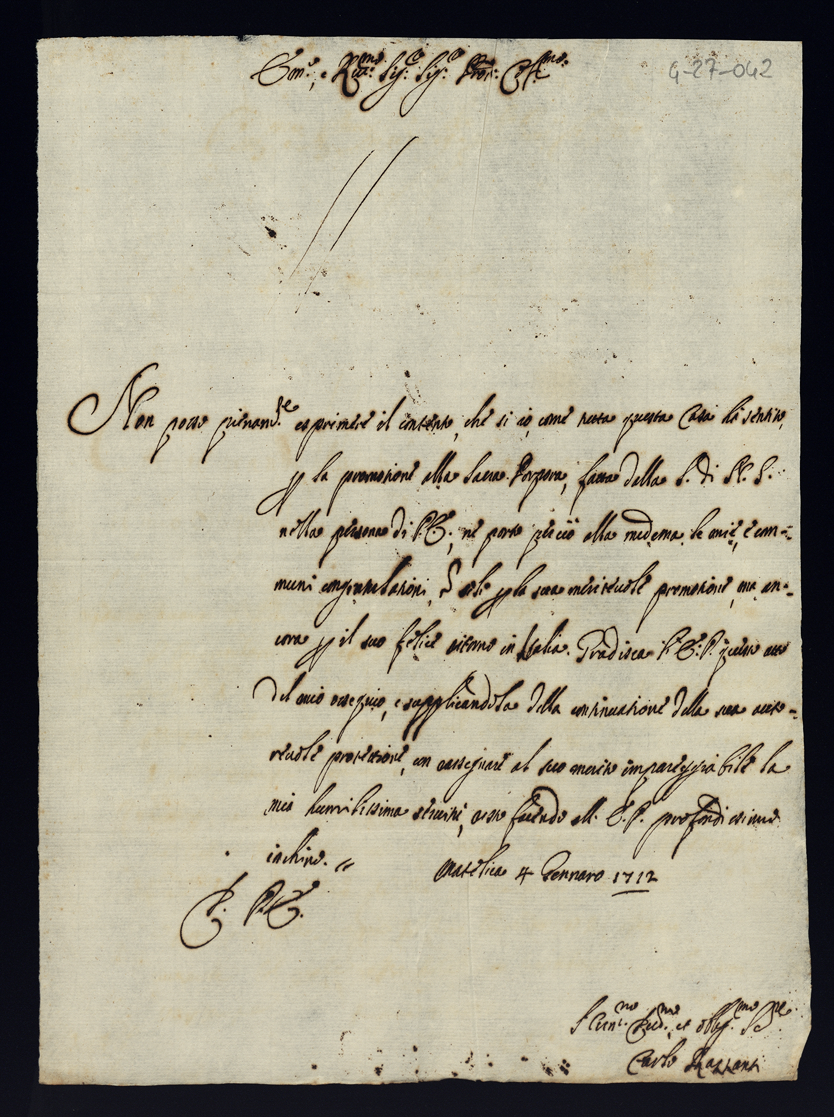 Em.º e Rev.mo Sig.r Sig.r Pron. Col.mo
4-27-042
Non posso pienam.te esprimere il contento, che si io, come tutta questa Casa hà sentito,
p la promozione alla Sacra Porpora, fatta dalla S. di N. S.
nella persona di V. E., ne porto perciò alla medema le mie, e com-
muni congratulazioni, e solo p la sua meritevole promozione, ma an-
cora p il suo felice ritorno in Italia. Gradisca V. E. P. questo atto
del mio ossequio, e supplicandola della continuatione della sua auto-
revole protettione, con rassegnare al suo merito impareggiabile la
mia humilissima servitù, resto facendo all' E. V. profondissimo
inchino.
Matelica 4 Gennaro 1712
D. V. E.
Humil.mo Dev.mo et obblig.mo S.re
Carlo